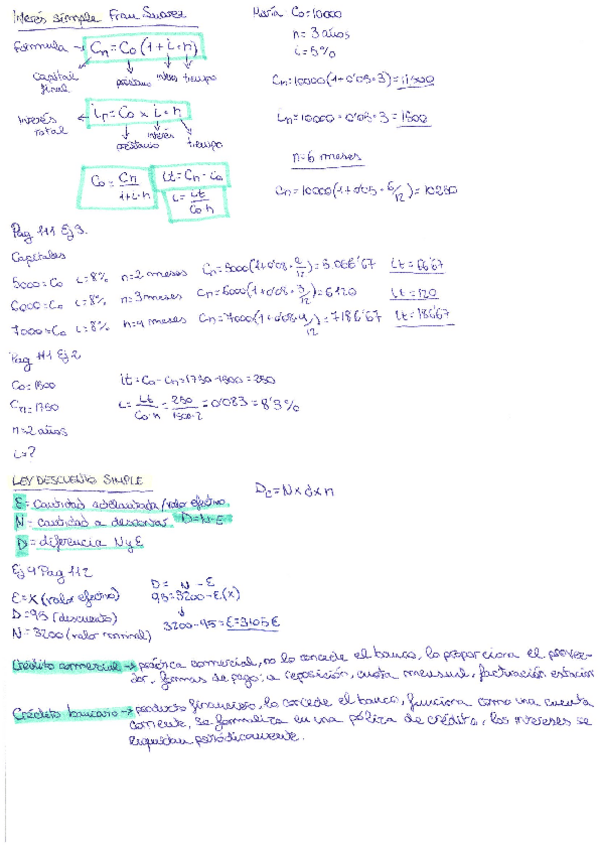 Interés simple Fran Suarez
formula → Cn = Co (1+i·n)
capital final
préstamo
interés
tiempo
Interés total
in = Co x i · n
préstamo
interés
tiempo
Co = Cn / 1+i·n
It = Cn - Co
i = It / Co·n
María Co = 10000
n = 3 años
i = 5%
Cn = 10000(1+0'05·3) = 11500
In = 10000·0'05·3 = 1500
n = 6 meses
Cn = 10000(1+0'05·6/12) = 10250
Pag 111 Ej 3.
Capitales
5000 = Co i = 8% n = 2 meses Cn = 5000(1+0'08·2/12) = 5.066'67 It = 66'67
6000 = Co i = 8% n = 3 meses Cn = 6000(1+0'08·3/12) = 6120 It = 120
7000 = Co i = 8% n = 4 meses Cn = 7000(1+0'08·4/12) = 7186'67 It = 186'67
Pag 111 Ej 2
Co = 1500
Cn = 1750
n = 2 años
i = ?
it = Co - Cn = 1750-1500 = 250
i = It / Co·n = 250 / 1500·2 = 0'083 = 8'3%
LEY DESCUENTO SIMPLE
E = Cantidad adelantada/valor efectivo.
N = cantidad a descontar. D = N - E
D = diferencia N y E
Dc = N x d x n
Ej 4 Pag 112
E = X (valor efectivo)
D = 95 (descuento)
N = 3200 (valor nominal)
D = N - E
95 = 3200 - E(X)
3200 - 95 = E = 3105€
Crédito comercial → práctica comercial, no lo concede el banco, lo proporciona el provee-
dor, formas de pago: a reposición, cuota mensual, facturación estacion
Crédito bancario → producto financiero, lo concede el banco, funciona como una cuenta
corriente, se formaliza en una póliza de crédito, los intereses se
liquidan periódicamente.